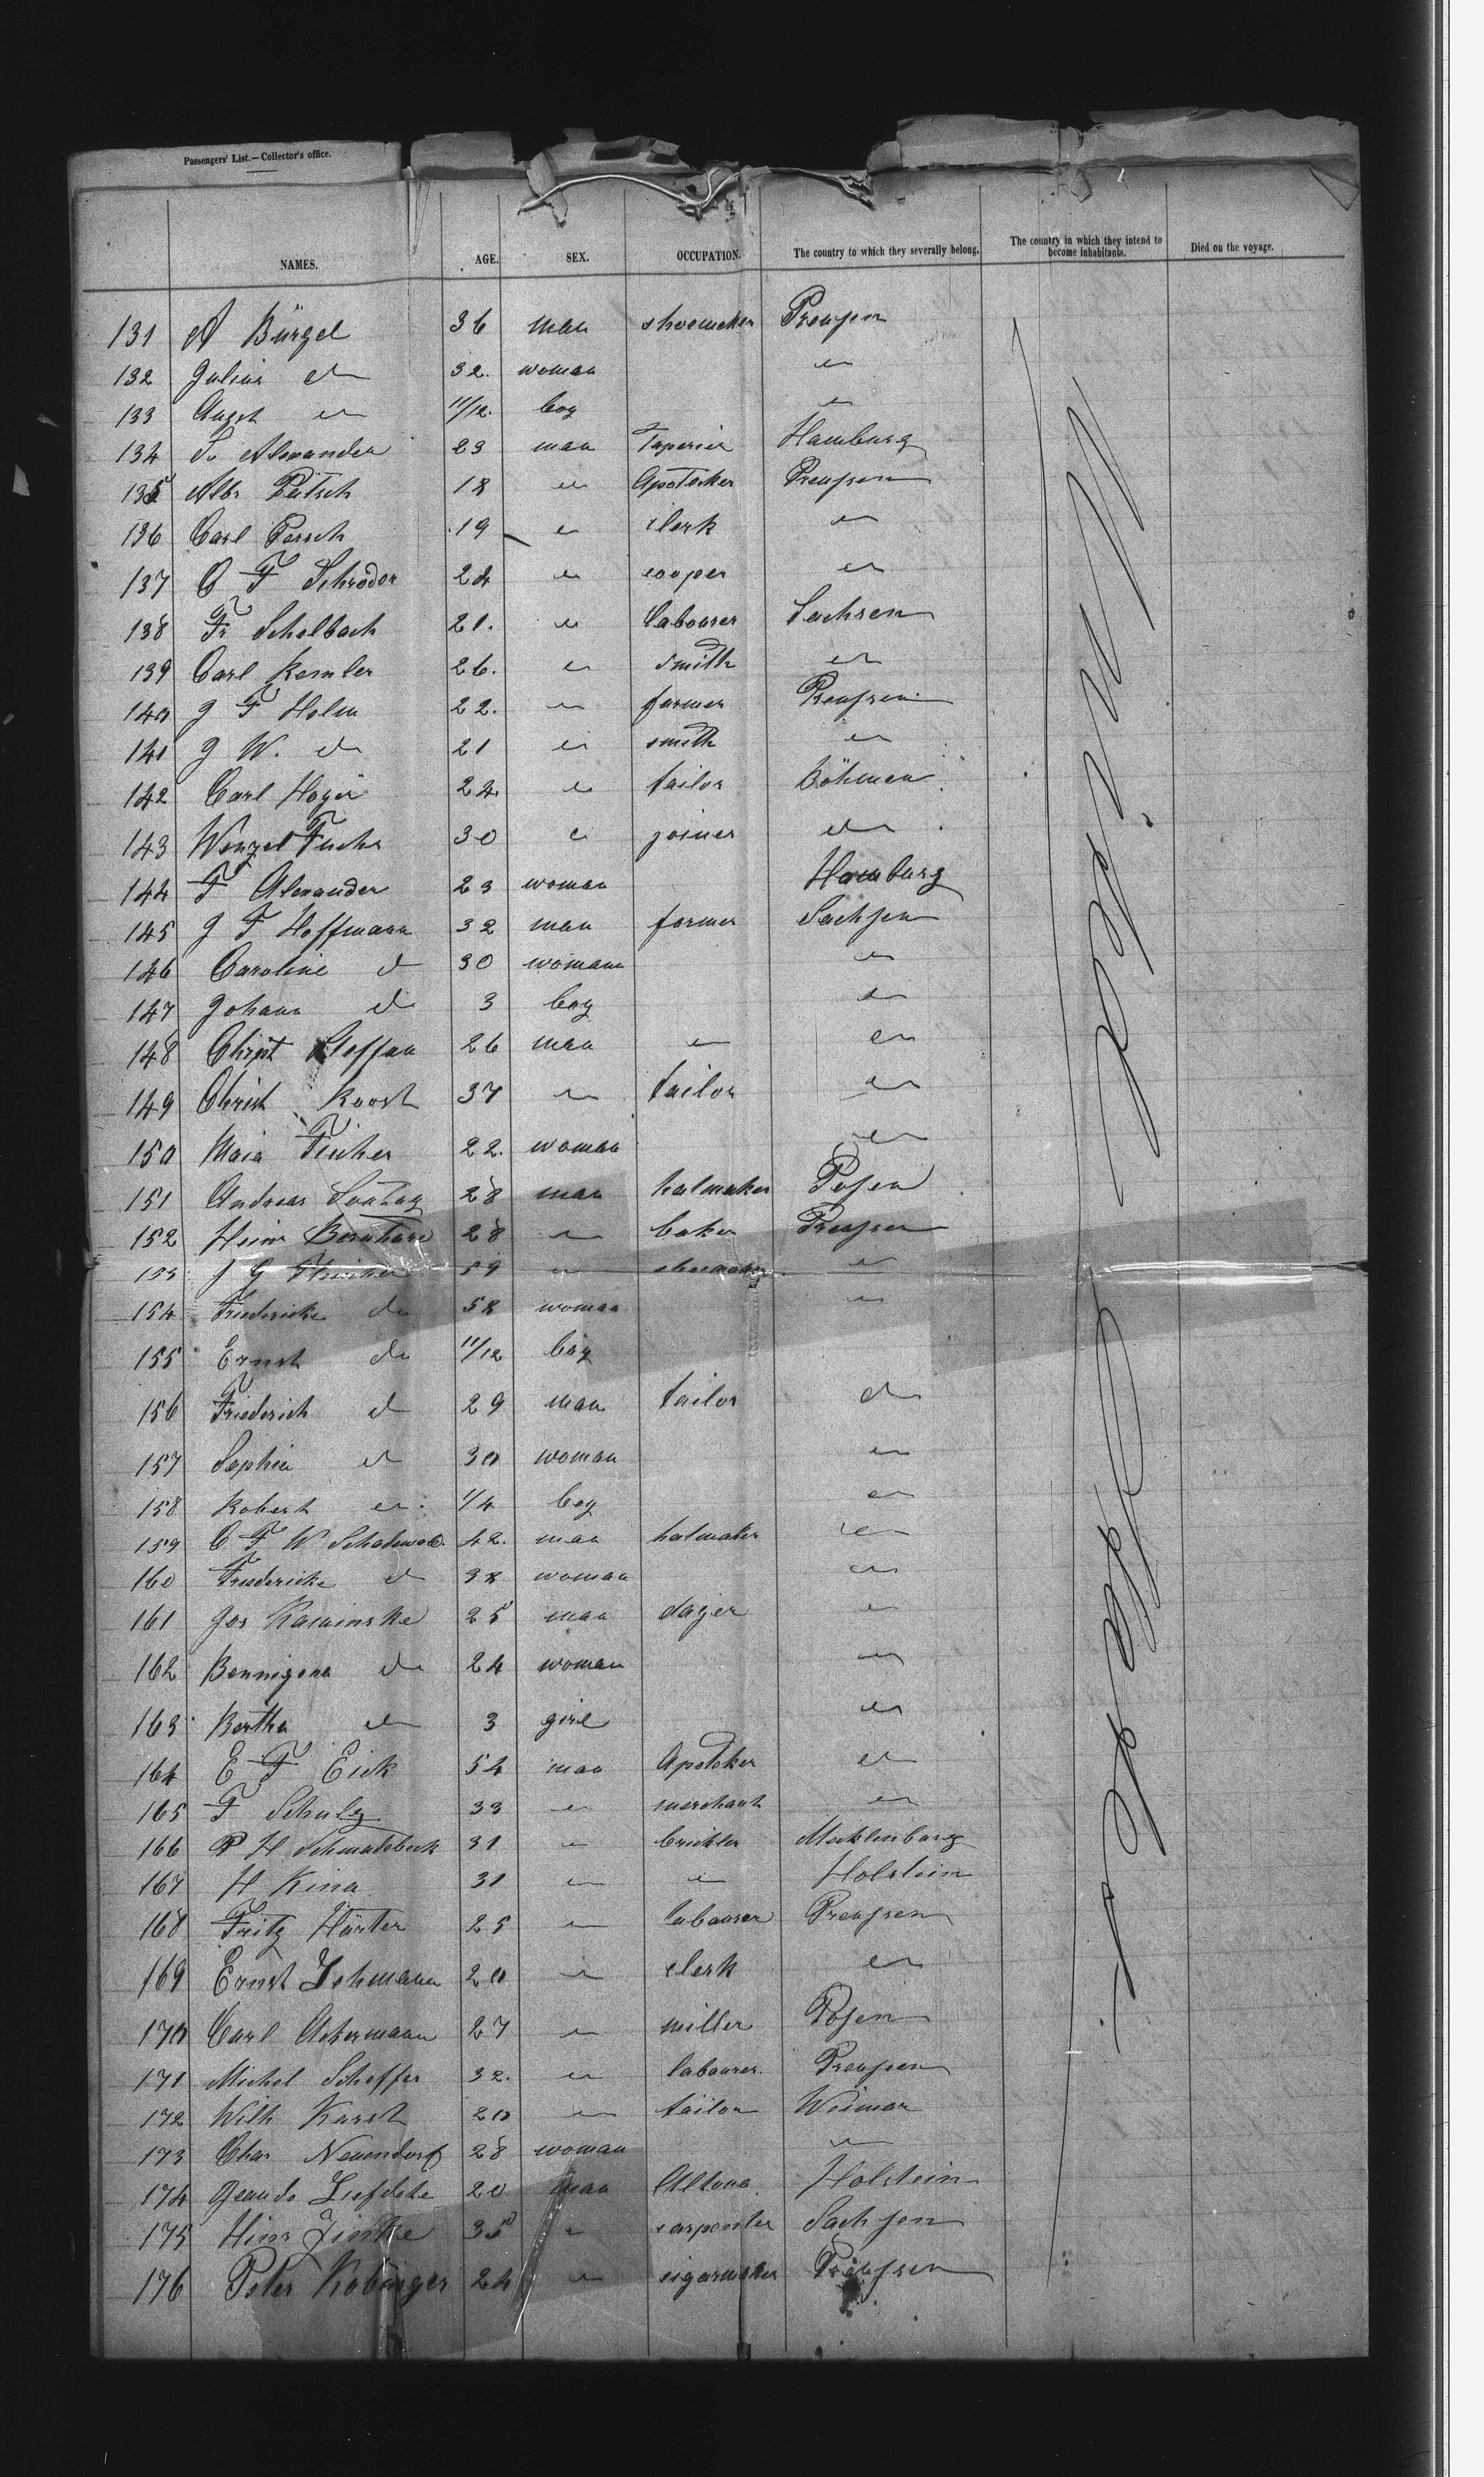 Passengers' List.—Collector's office.
NAMES. AGE. SEX. OCCUPATION. The country to which they severally belong. The country in which they intend to become inhabitants. Died on the voyage.
131 A Bürgel 36 man shoemaker Preussen
132 Julius do 32. woman do
133 Augst do 11/12. boy do
134 S. Alexander 23 man Taperier Hamburg
135 Albr Pätsch 18 do Apotecker Preussen
136 Carl Persch 19 do clerk do
137 C F Schröder 24 do cooper do
138 Fr Scholbach 21. do labourer Sachsen
139 Carl Kemler 26. do smith do
140 J F Holm 22. do farmer Preussen
141 J W. do 21 do smith do
142 Carl Hoyer 24. do tailor Böhmen
143 Wenzel Fuchs 30 do joiner do
144 F Alexander 23 woman Hamburg
145 J F Hoffmann 32 man farmer Sachsen
146 Caroline do 30 woman do
147 Johann do 3 boy do
148 Christ Steffan 26 man do do
149 Christ Koost 37 do tailor do
150 Maia Fischer 22. woman do
151 Andreas Sontag 28 man hatmaker Posen
152 Heinr Bernhard 28 do baker Preussen
153 J G 59 do shoemaker do
154 Friedericke do 58 woman do
155 Ernst do 11/12 boy
156 Friederich do 29 man tailor do
157 Sophia do 30 woman do
158 Robert do 1/4 boy do
159 C F W Schadewald 42. man hatmaker do
160 Friedericke do 38 woman do
161 Jos Kaminske 25 man dager do
162 Bennigena do 24 woman do
163 Bertha do 3 girl do
164 E F Eick 54 man Apoteker do
165 F Schulz 33 do merchant do
166 P H Schmadebeck 31 do Mecklenburg
167 H Kina 31 do do Holstein
168 Fritz Härter 25 do labourer Preussen
169 Ernst Lehmann 20 do clerk do
170 Carl Ackermann 27 do miller Posen
171 Michel Scheffer 32. do labourer Preussen
172 Wilh Karst 20 do tailor Weimar
173 Char Neuendorf 28 woman do
174 Liefdeke 20 man Altona Holstein
175 Hinr Zinke 35 do carpenter Sachsen
176 Peter Kobinger 24 do cigarmaker Preussen